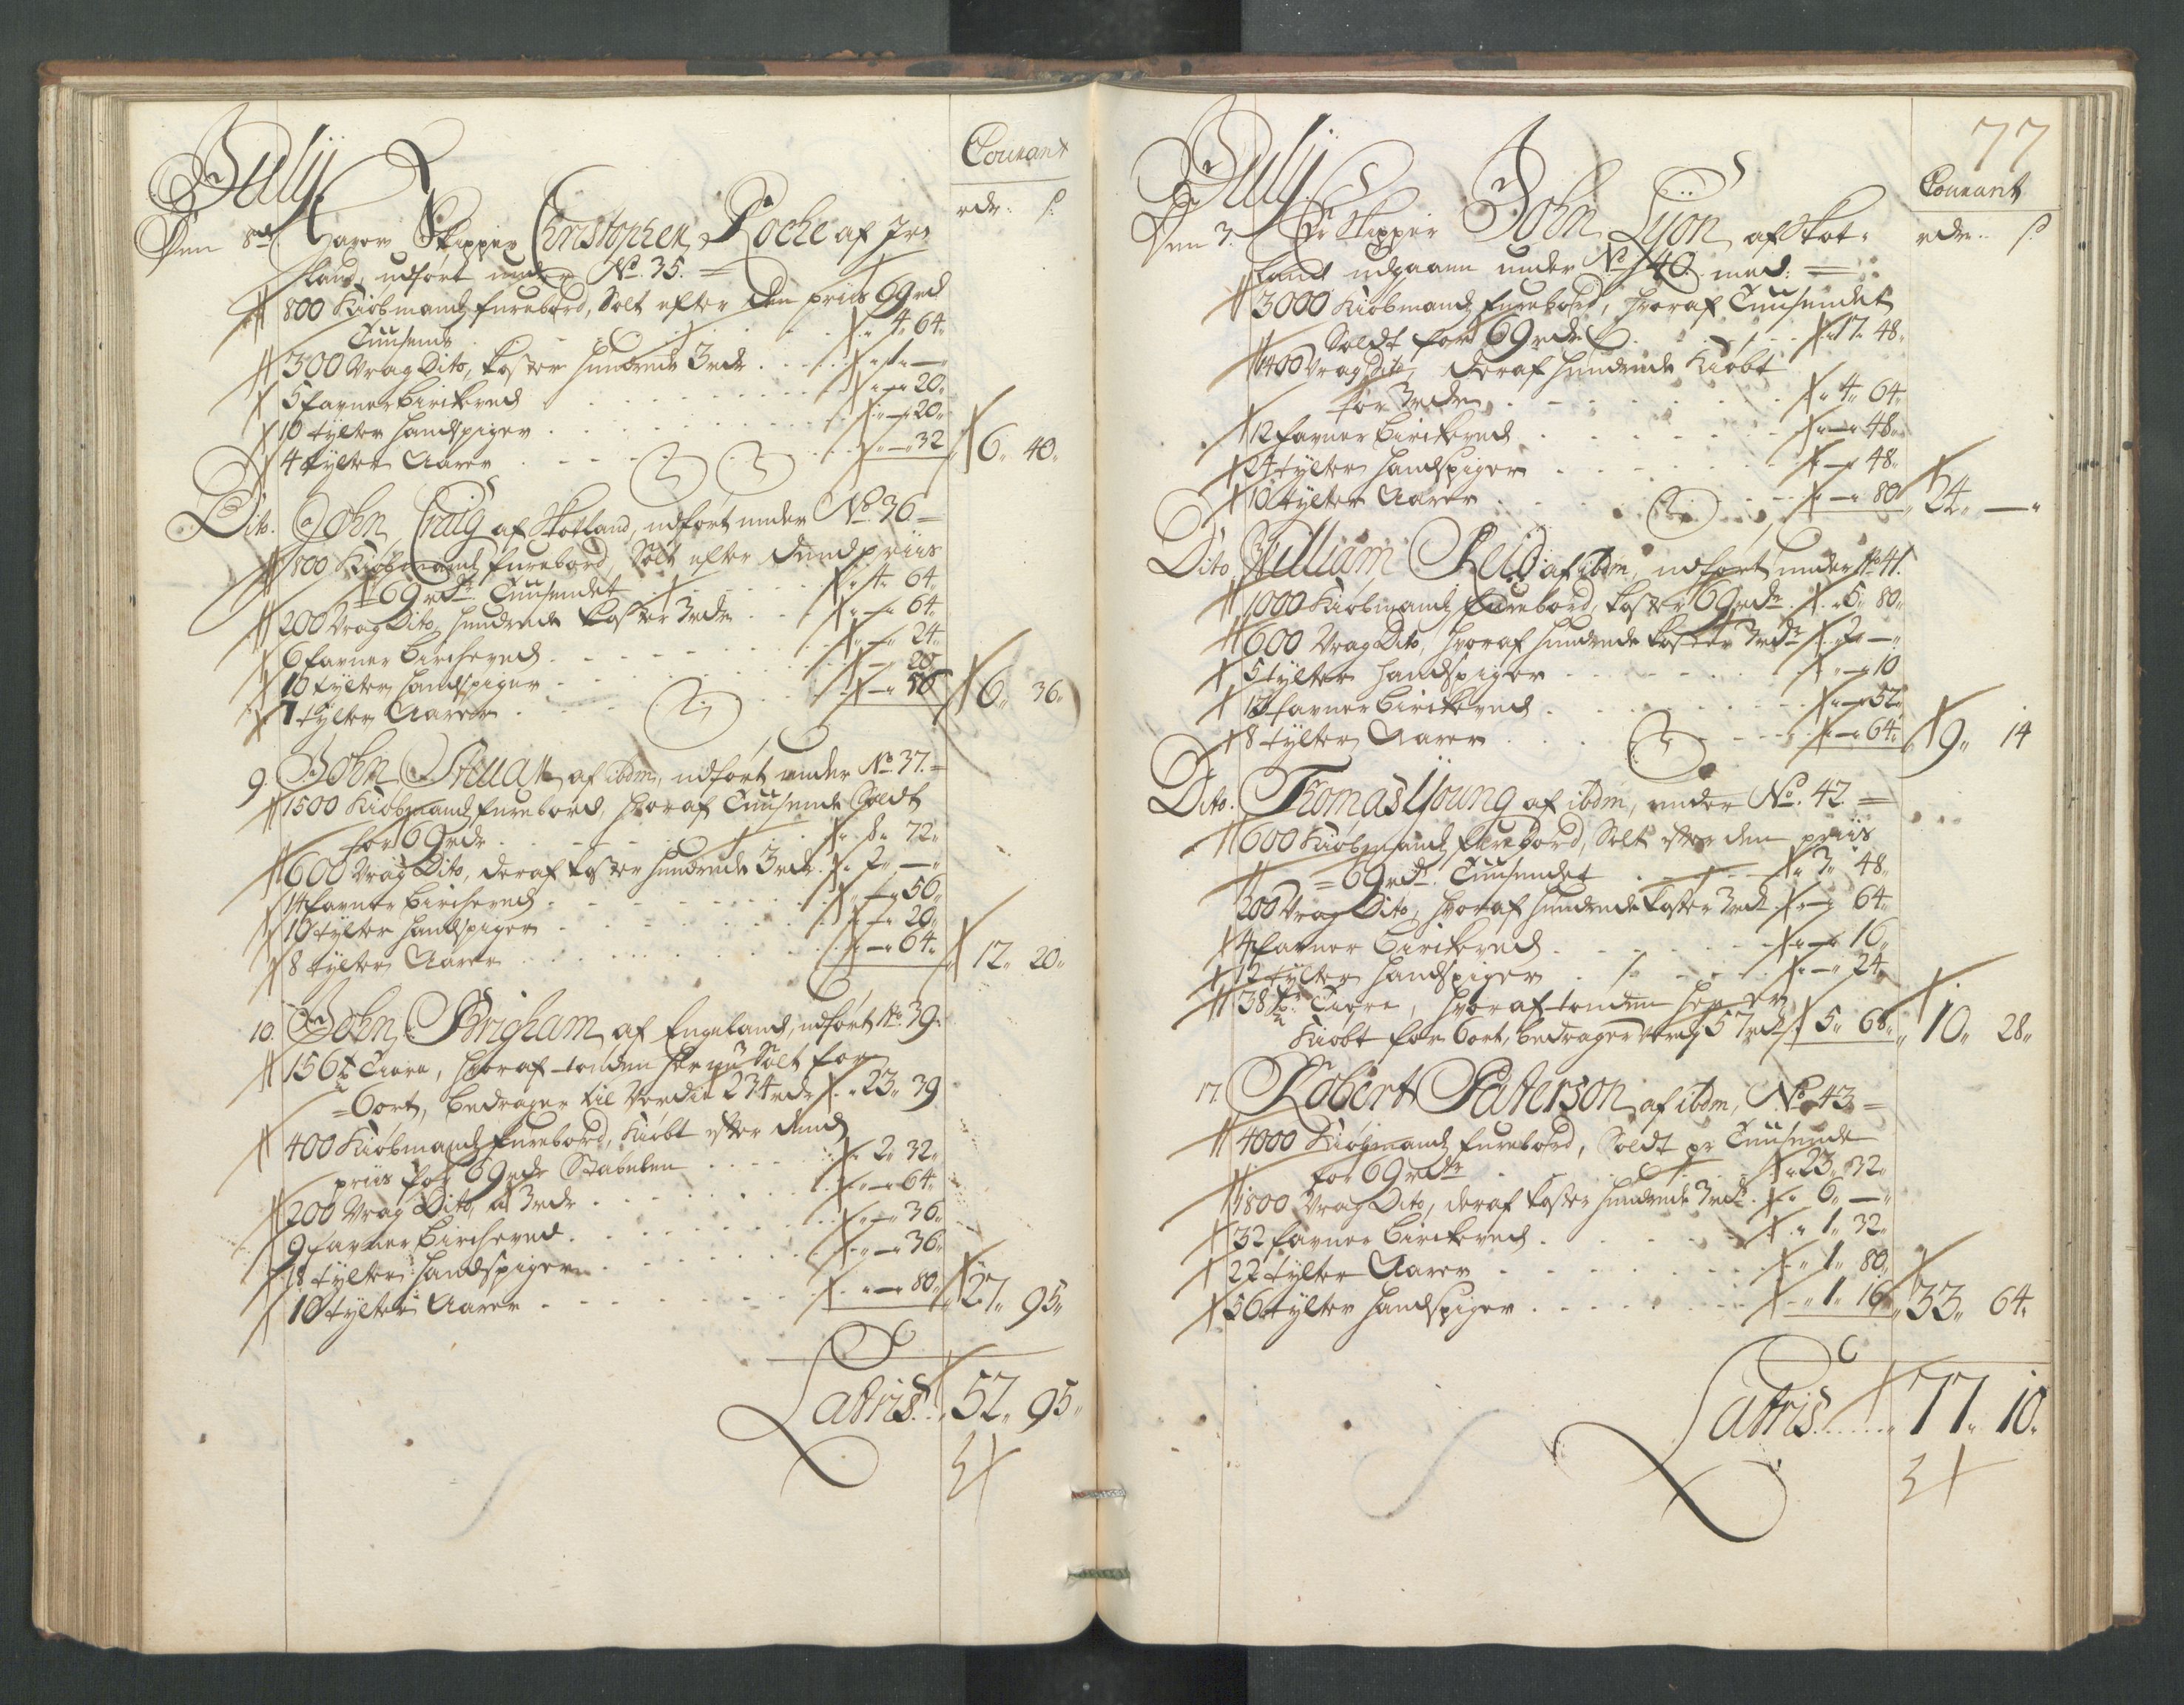 July
Courant
rdr: s:
Den 8de Haver Skipper Christopher Roche af Ir-
land, udført under No. 35. =
800 Kiøbmands furebord, Solt efter den priis 69 rd
Tuusend . . . 4„ 64„
300 Vrag Dito, koster hundrede 3 rdr . . . „ 1„ —„
5 favner Birckeved . . . „ — „ 20„
10 tylter Handspiger . . . „ — „ 20„
4 tylter Aarer . . . „ — „ 32 6„ 40„
Dito. John Craig af Skotland, udført under No. 36 =
800 Kiøbmands furebord, Solt efter dend priis
= 69 rdr. Tuusendet . . . „ 4„ 64„
200 Vrag Dito, hundrede koster 3 rdr . . . „ — „ 64„
6 favner Bircheved . . . „ — „ 24„
10 tylter Handspiger . . . „ — „ 20
7 tylter Aarer . . . „ — „ 56 6„ 36„
9. John Stuart af ibdm, udført under No. 37. =
1500 Kiøbmands furebord, hvoraf Tuusende Soldt
for 69 rdr . . . „ 8„ 72„
600 Vrag Dito, deraf koster hundrede 3 rdr. „ 2„ —„
14 favner Bircheved . . . „ — „ 56„
10 tylter Handspiger . . . „ — „ 20„
8 tylter Aarer . . . „ — „ 64„ 12„ 20„
10. John Brigham af Engeland, udført No. 39.
156 tr Tiære, hvoraf tønden her nu Solt for
= 6 ort, bedrager til Værdie 234 rdr „ 23„ 39
400 Kiøbmands furebord, Kiøbt efter dend
priis for 69 rdr Stabelen . . . „ 2„ 32„
200 Vrag Dito, a 3 rdr . . . „ — „ 64„
9 favner Bircheved . . . „ — „ 36„
18 tylter Handspiger . . . „ — „ 36„
10 tylter Aarer . . . „ — „ 80„ 27„ 95„
Latris . . 52„ 95„
77
July
Courant
rdr. s:
Den 3. Er Skipper John Lyon af Skot-
land udgaaen under No. 40 med: =
3000 Kiøbmands furebord, hvoraf Tuusendet
Soldt for 69 rdr . . . „ 17„ 48„
1400 Vrag Dito, deraf hundrede Kiøbt
for 3 rdr . . . „ 4„ 64„
12 favner Birckeved . . . „ — „ 48„
24 tylter Handspiger . . . „ — „ 48„
10 tylter Aarer . . . „ — „ 80 24„ —„
Dito William Reid af ibdm, udført under No. 41.
1000 Kiøbmands furebord, koster 69 rdr. „ 5„ 80„
600 Vrag Dito, hvoraf hundrede koster 3 rdr „ 2„ —„
5 tylter Handspiger . . . „ — „ 10
13 favner Birckeved . . . „ — „ 52„
8 tylter Aarer . . . „ — „ 64„ 9„ 14
Dito. Thomas Young af ibdm, under No. 42. =
600 Kiøbmands furebord, Solt efter den priis
= 69 rdr. Tuusendet . . . „ 3„ 48„
200 Vrag Dito, hvoraf hundrede koster 3 rdr „ — „ 64„
4 favner Birckeved . . . „ — „ 16„
12 tylter Handspiger . . . „ — „ 24„
38 tr Tiære, hvoraf tønden her er
Kiøbt for 6 ort, bedrager Værdj 57 rdr „ 5„ 68„ 10„ 28„
17. Robert Paterson af ibdm, No. 43 =
4000 Kiøbmands furebord, Soldt pr Tuusende
for 69 rdr . . . „ 23„ 32„
1800 Vrag Dito, deraf koster hundrede 3 rdr. „ 6„ —„
32 favner Birckeved . . . „ 1„ 32„
22 tylter Aarer . . . „ 1„ 80„
56 tylter Handspiger . . . „ 1„ 16 33„ 64„
Latris . . . . 77„ 10„